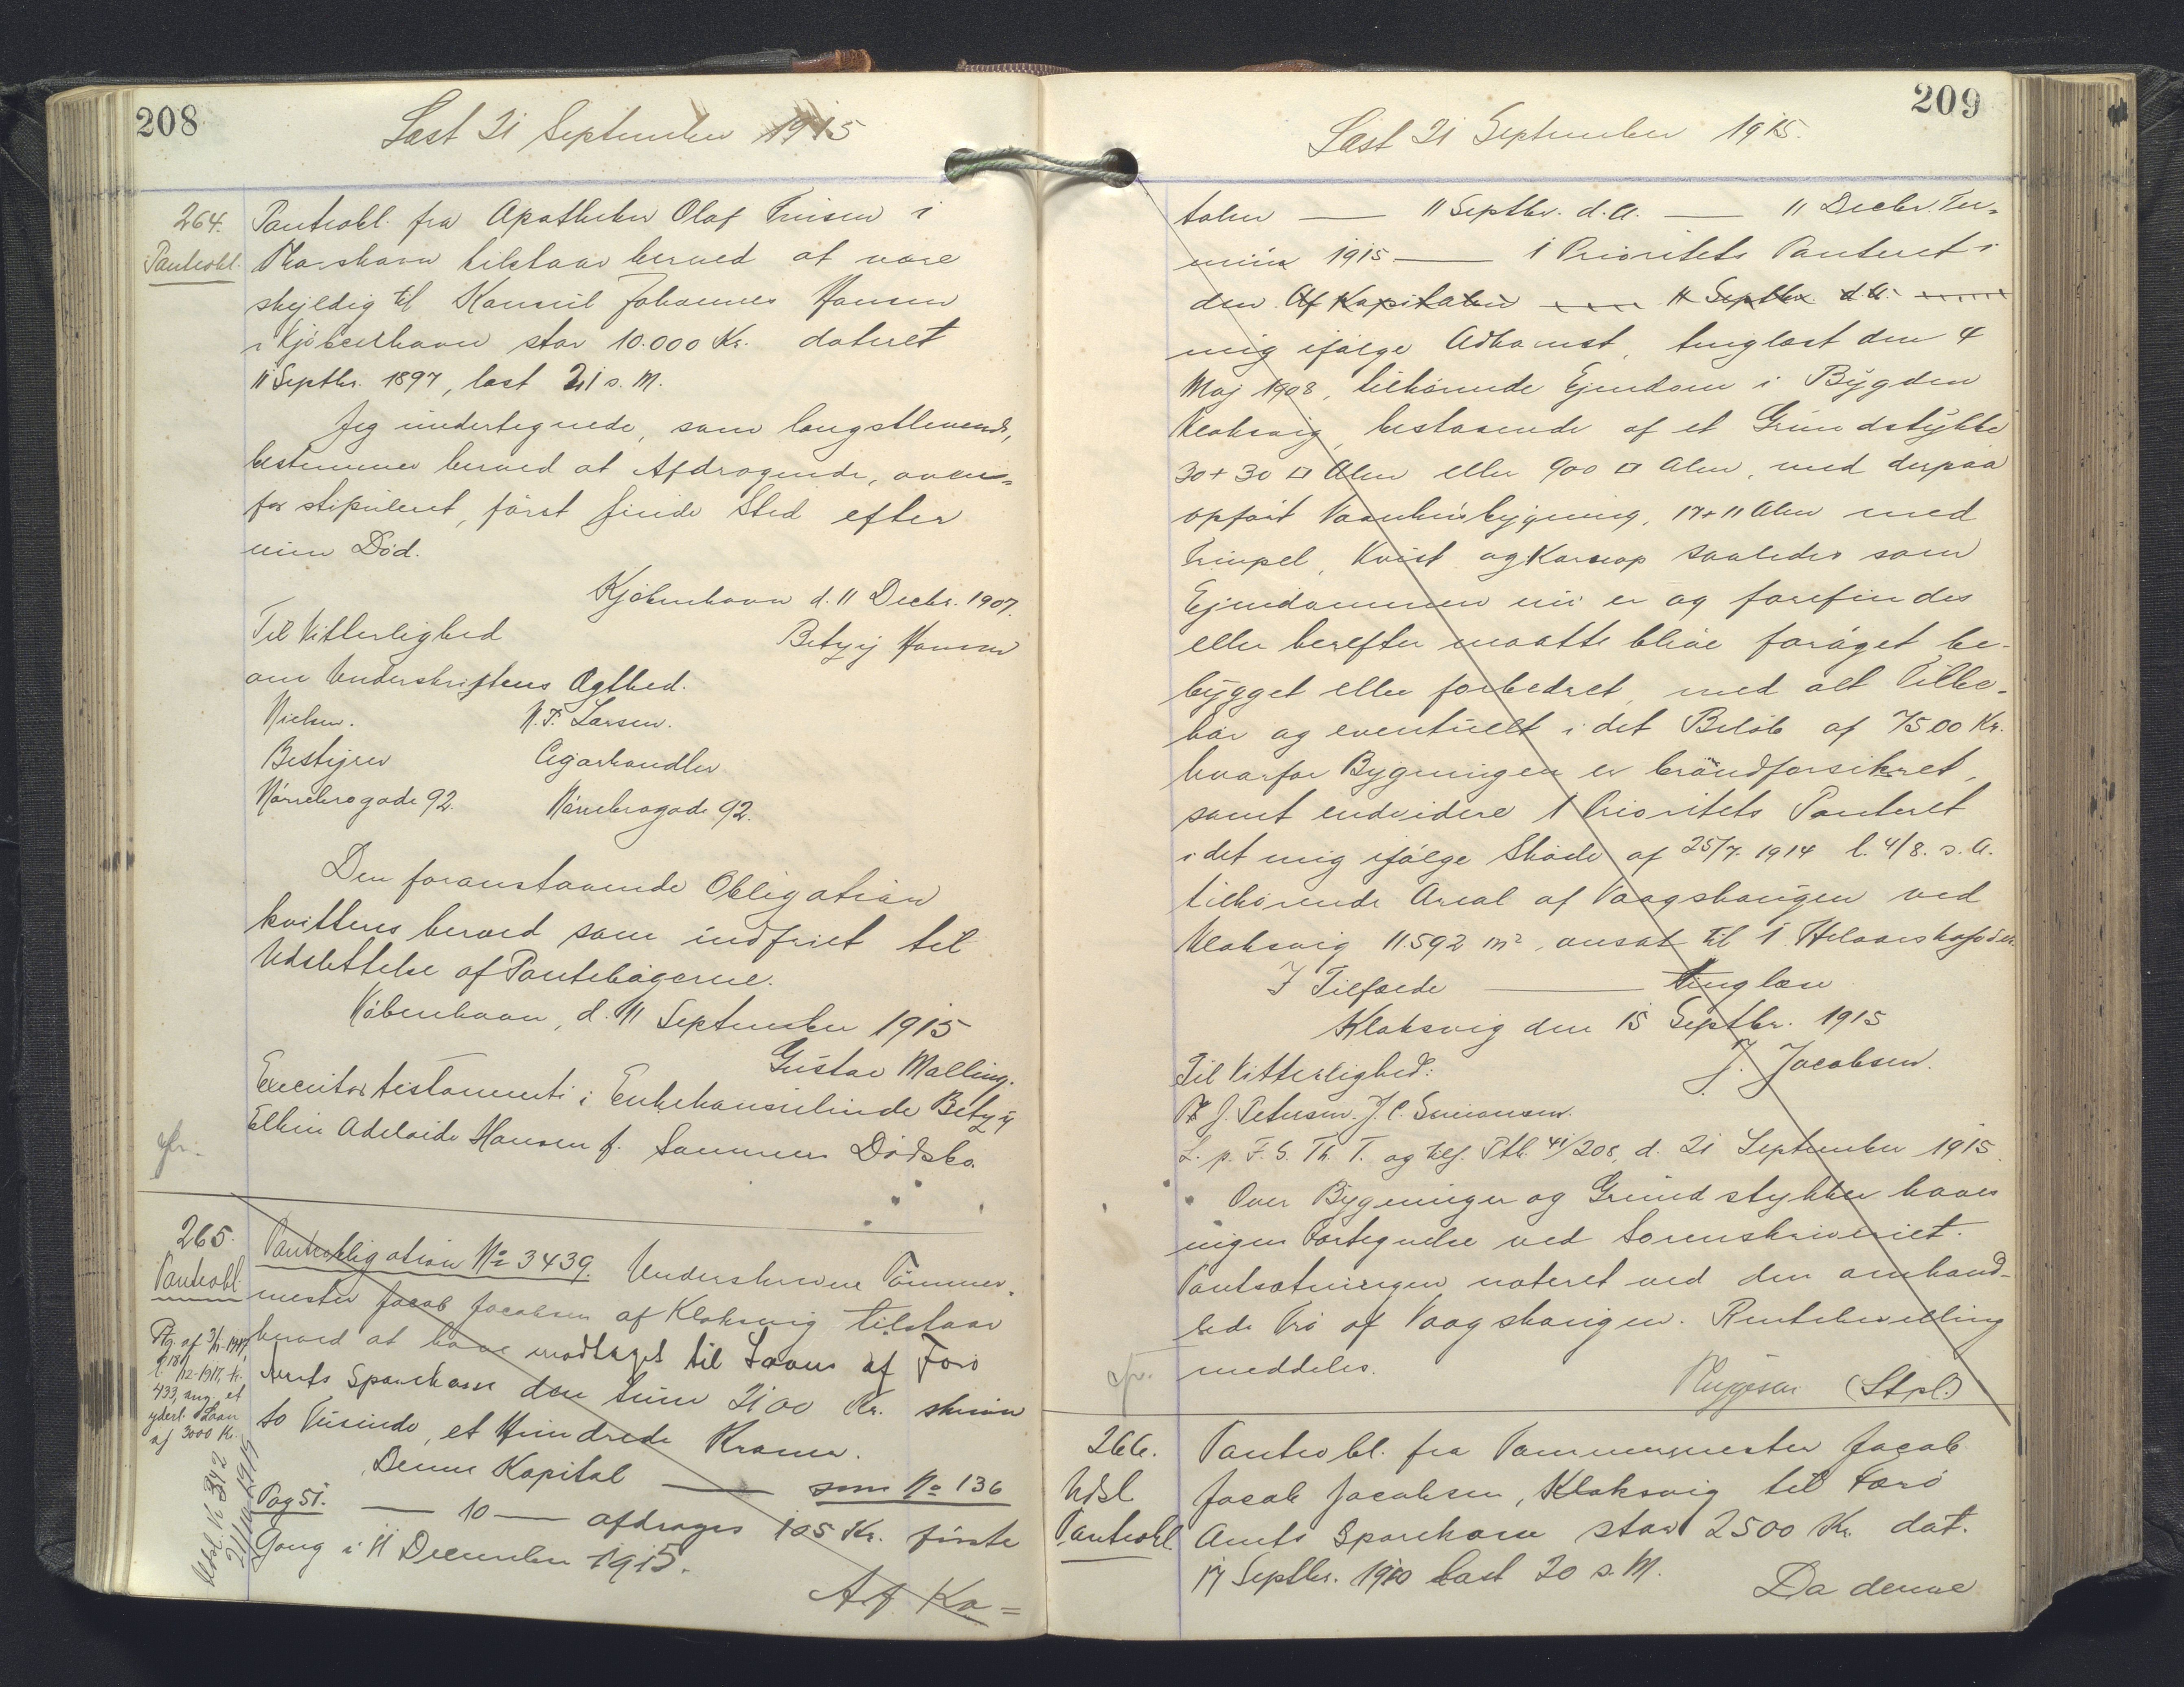 208
Læst 21 September 1915
264.
Panteobl.
Panteobl. fra Apotheker Olaf Finsen i
Thorshavn tilstaar herved at være
skyldig til Konsul Johannes Hansen
i Kjöbenhavn stor 10.000 Kr. dateret
11 Septbr. 1897, læst 21 s. M.
Jeg undertegnede, som længstlevende,
bestemmer herved at Afdragende, oven-
for stipuleret, först finde Sted efter
min Död.
Kjöbenhavn d. 11 Decbr. 1907.
Til Vitterlighed
Betzy Hansen
om Underskriftens Ægthed.
Nielsen. N. F. Larsen.
Bestyrer Cigarhandler
Nörrebrogade 92. Nörrebrogade 92.
Den foranstaaende Obligation
kvitteres herved som indfriet til
Udslettelse af Pantebögerne.
Köbenhavn, d. 11 September 1915
Gustav Malling.
Executor testamenti i Enkekonsulinde Betzy
Elkin Adelaide Hansen f. Dödsbo.
265.
Panteobl.
Panteobligation No 3439. Underskrevne Tömmer-
mester Jacob Jacobsen af Klaksvig tilstaar
herved at have modtaget til Laans af Færö
Amts Sparekasse den Sum 2100 Kr. skriver
to Tusinde, et Hundrede Kroner.
Denne Kapital — som No 136
Pag 51. — 10 — afdrages 105 Kr. förste
Gang i 11 December 1915.
Af Ka=
433, ang. et
yderl. Laan
af 3000 Kr.
209
Læst 21 September 1915.
talen — 11 Septbr. d. A. — 11 Decbr. Ter-
min 1915 — 1 Prioritets Panteret i
den Af Kapitalen 11 Septbr. d. A.
mig ifölge Adkomst, tinglæst den 4
Maj 1908, tilhörende Ejendom i Bygden
Klaksvig, bestaaende af et Grundstykke
30 + 30 □ Alen eller 900 □ Alen, med derpaa
opfört Vaanhusbygning, 17 + 11 Alen med
Frimpel, Kvist og Karnap saaledes som
Ejendommen nu er og forefindes
eller herefter maatte blive foröget be-
bygget eller forbedret, med alt Tilbe-
hör og eventuelt i det Belöb af 7500 Kr.
hvorfor Bygningen er brandforsikret,
samt endvidere 1 Prioritets Panteret
i det mig ifölge Sköde af 25/7. 1914 l. 4/8. s. A.
tilhörende Areal af Vaagshaugen ved
Klaksvig 11.592 m², ansat til 1 Helaarskofoder.
I Tilfælde — tinglæse
Klaksvig den 15 Septbr. 1915
Til Vitterlighed: J. Jacobsen.
J. Petersen. J. C. Simonsen.
L. p. F. S. Th. T. og tilf. Ptb. 41/208, d. 21 September 1915.
Over Bygninger og Grundstykker haves
ingen Fortegnelse ved Sorenskriveriet.
Pantsætningen noteret ved den omhand-
lede Trö af Vaagshaugen. Rentebevilling
meddeles.
(Stpl.)
266.
Udsl.
Panteobl.
Panteobl. fra Tömmermester Jacob
Jacob Jacobsen, Klaksvig til Færö
Amts Sparekasse stor 2500 Kr. dat.
17 Septbr. 1910 læst 20 s. M.
Da denne